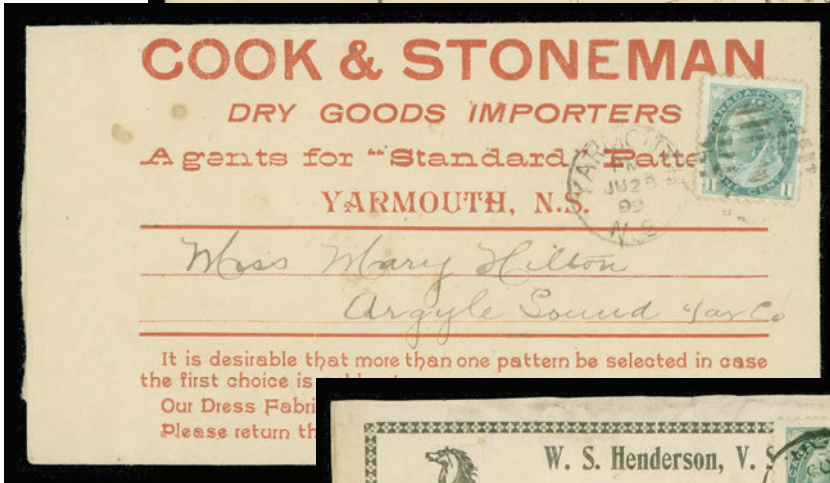 COOK & STONEMAN
DRY GOODS IMPORTERS
Agents for "Standard" Patte
YARMOUTH, N.S.
YARMOUTH
PM
JU 23
99
N.S
CANADA POSTAGE
1 ONE CENT 1
Miss Mary Hilton
Argyle Sound Yar Co
It is desirable that more than one pattern be selected in case
the first choice is
Our Dress Fabri
Please return th
W. S. Henderson, V. S.